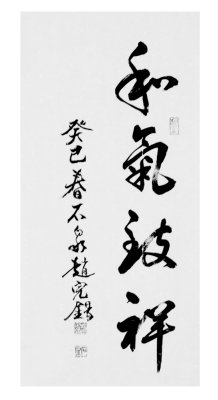 和氣致祥
癸巳春石泉趙完鎬